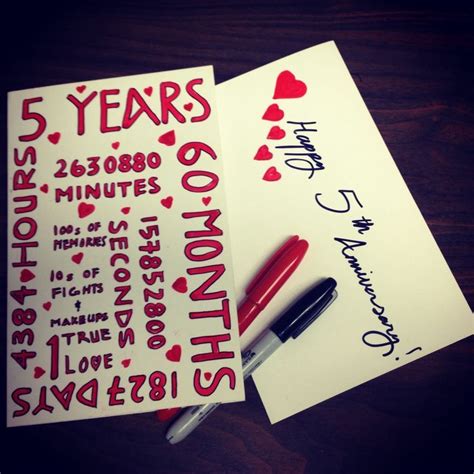 5 YEARS
60 MONTHS
1827 DAYS
4384 HOURS
2630880
MINUTES
157852800
SECONDS
100s OF
MEMORIES
10s OF
FIGHTS
&
MAKEUPS
1 TRUE
LOVE
Happy
5th Anniversary!